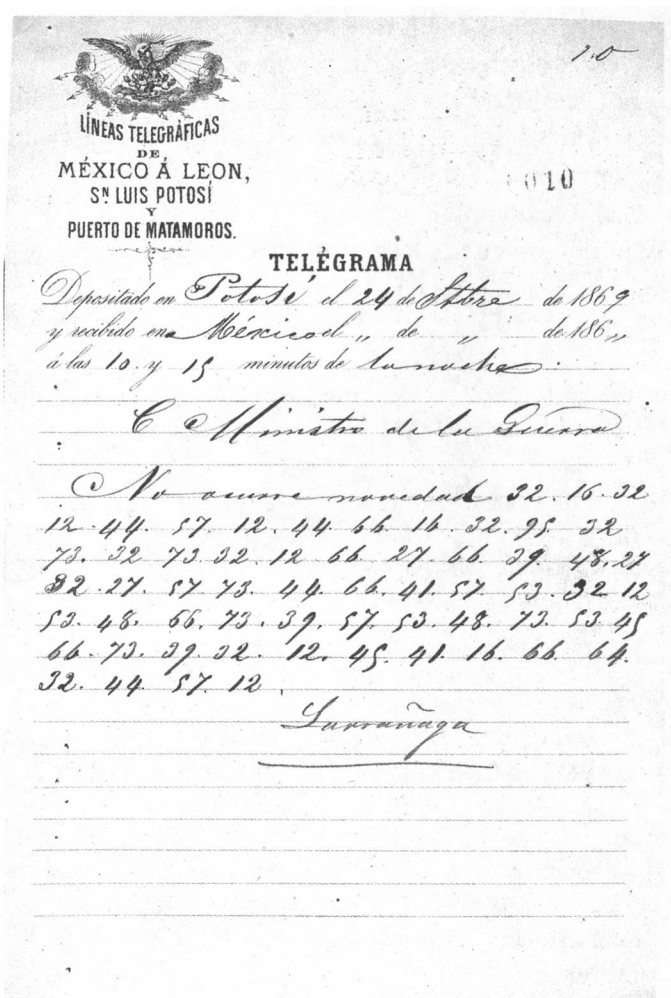 1.0
LÍNEAS TELEGRÁFICAS
DE
MÉXICO Á LEON,
SN LUIS POTOSÍ
Y
PUERTO DE MATAMOROS.
010
TELÉGRAMA
Depositado en Potosí el 24 de Stbre de 1869
y recibido en México el „ de „ de 186„
á las 10 y 15 minutos de la noche.
C Ministro de la Guerra
No ocurre novedad 32. 16. 32
12. 44. 57. 12. 44 66 16. 32. 95 32
73. 32 73. 32. 12 66 27. 66. 39. 48. 27
32. 27. 57 73. 44. 66. 41. 57. 53. 32 12
53. 48. 66. 73. 39. 57. 53. 48. 73. 53. 45
66. 73. 39. 32. 12. 45. 41. 16. 66. 64.
32. 44. 57. 12.
Larrañaga